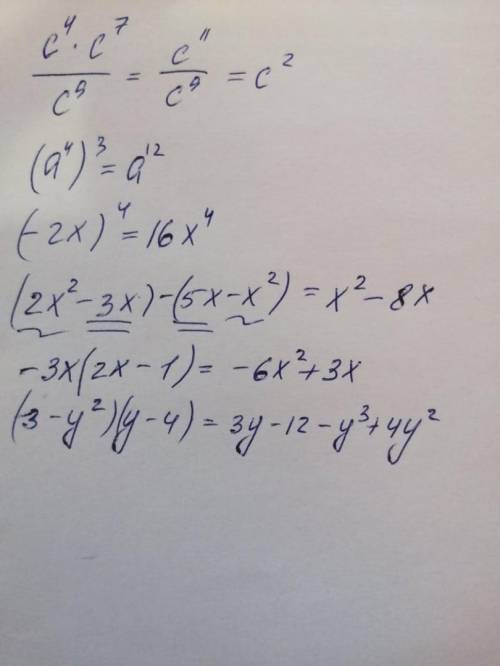 c⁴·c⁷/c⁹ = c¹¹/c⁹ = c²
(a⁴)³ = a¹²
(-2x)⁴ = 16x⁴
(2x² - 3x) - (5x - x²) = x² - 8x
-3x(2x - 1) = -6x² + 3x
(3 - y²)(y - 4) = 3y - 12 - y³ + 4y²